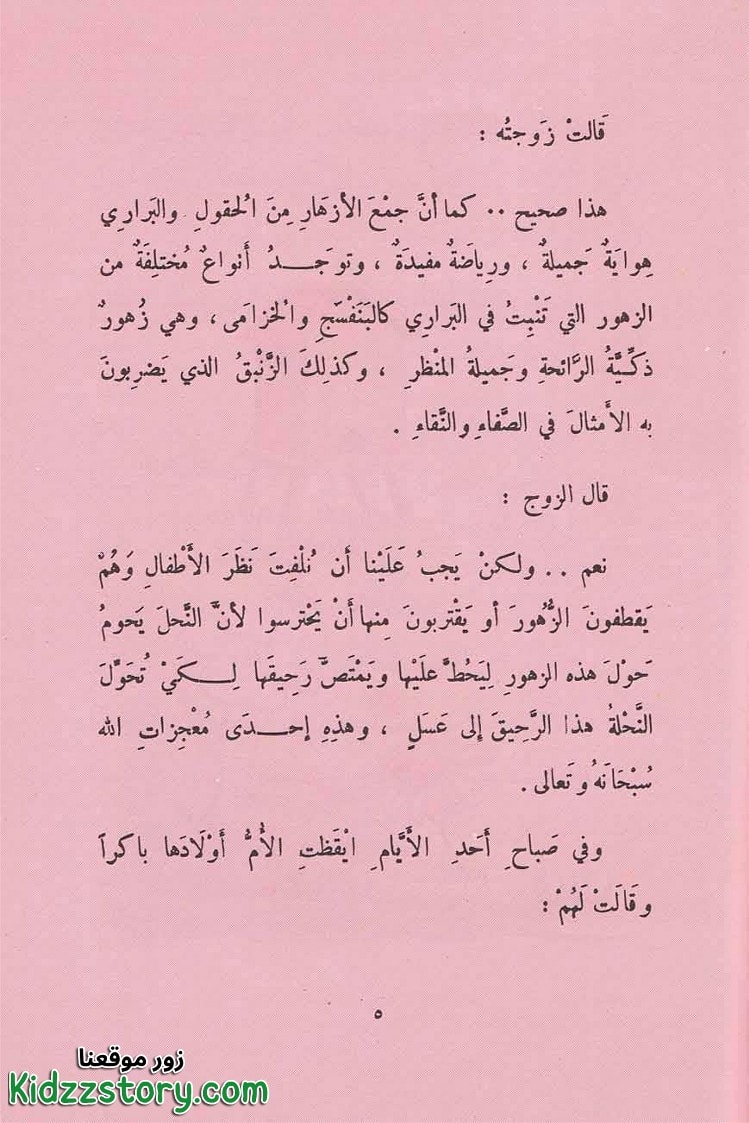 قَالتْ زَوجتُه :
هذا صحيح .. كما أنَّ جمْعَ الأزهَارِ مِنَ الْحقولِ والبَرارِي
هِوايَةٌ جَميلةٌ ، ورِياضَةٌ مفيدَةٌ ، وتوجَدُ أنواعٌ مُختلِفَةٌ من
الزهور التي تَنْبِتُ في البَراري كالبَنَفْسَجِ والْخزامَى ، وهي زُهورٌ
ذكّيَّةُ الرَّائحةِ وجَميلةُ المنْظرِ ، وكذلِكَ الزَّنْبقُ الذي يَضرِبونَ
به الأَمثالَ في الصَّفاءِ والنَّقاءِ .
قال الزوج :
نعم .. ولكنْ يَجبُ عَلَيْنا أن نُلْفِتَ نَظَرَ الأَطْفالِ وَهُمْ
يَقطفونَ الزُّهورَ أو يَقْتربونَ مِنها أنْ يَحْترسوا لأنَّ النَّحلَ يَحومُ
حَوْلَ هذه الزهورِ لِيَحُطَّ علَيْها ويَمْتَصَّ رَحِيقَها لِكَيْ تُحَوَّلَ
النَّحْلةُ هذا الرَّحِيقَ إلى عَسَلٍ ، وهذِهِ إحدَى مُعْجِزاتِ الله
سُبْحَانَهُ وتَعالى .
وفي صَباحِ أَحَدِ الأَيَّامِ ايْقَظتِ الأُمُّ أَوْلَادَها باكراً
وقَالَتْ لَهُمْ :
٥
زور موقعنا
Kidzzstory.com